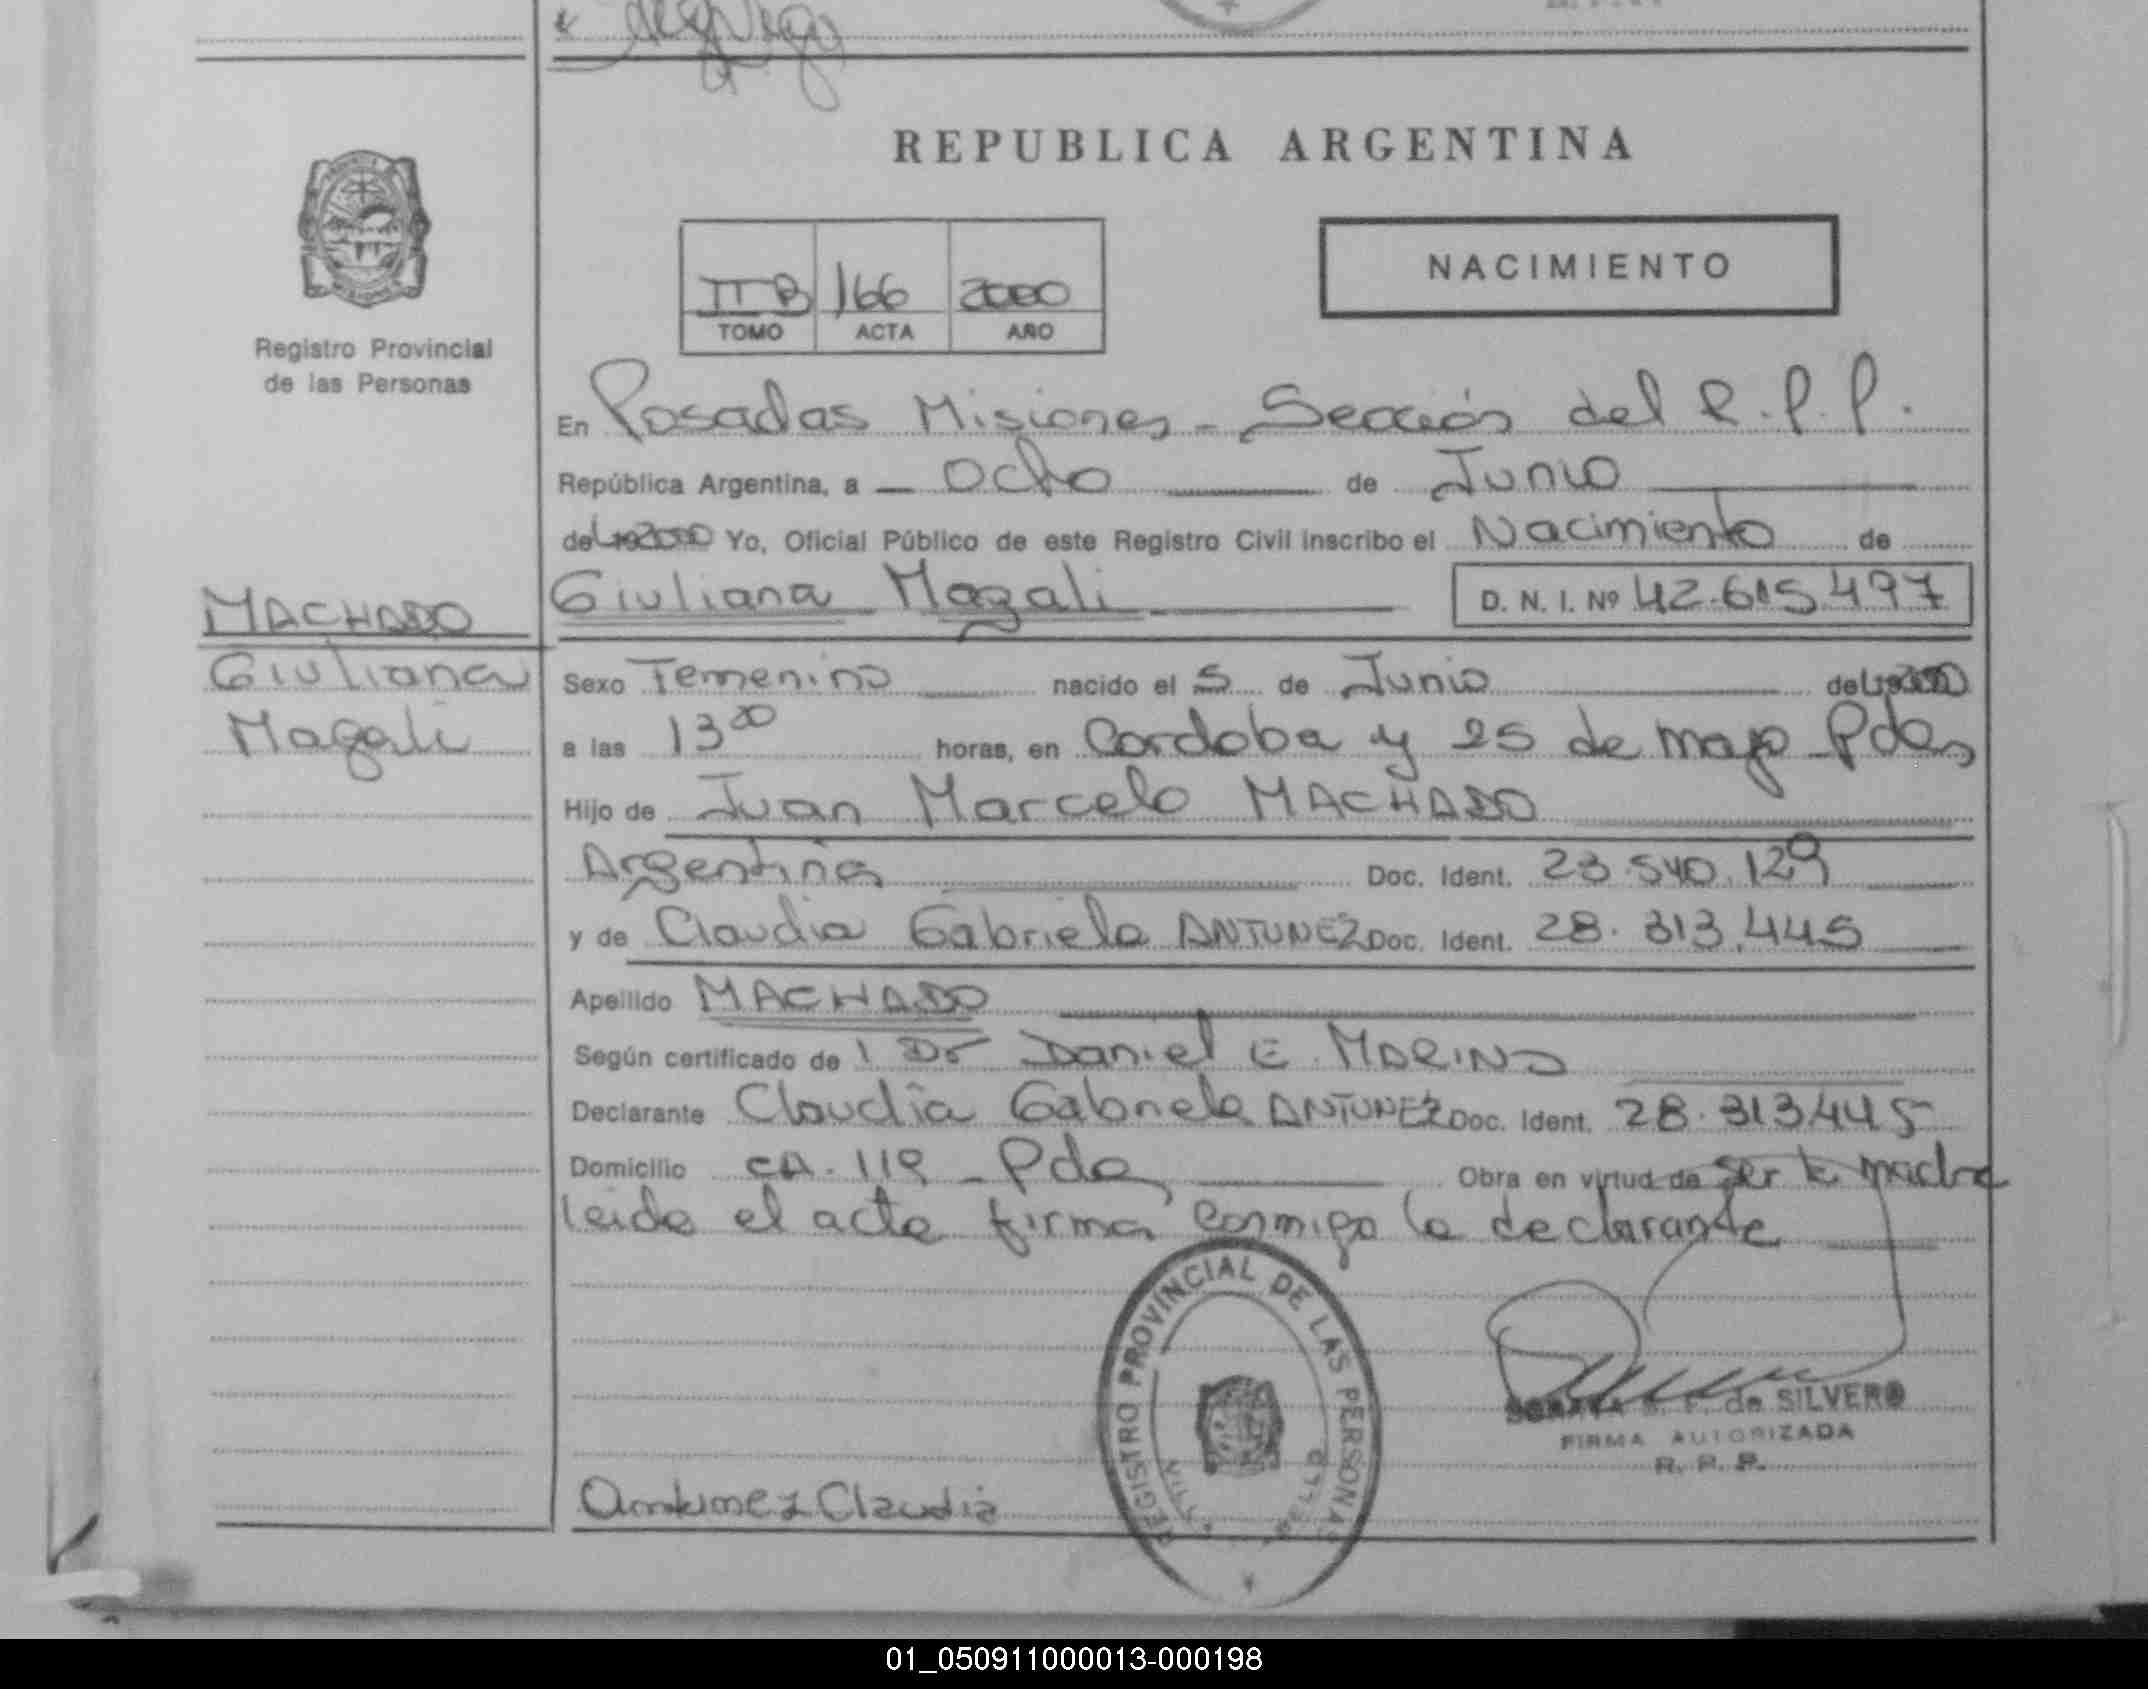 REPUBLICA ARGENTINA
Registro Provincial
de las Personas
NACIMIENTO
II B 166 2000
TOMO ACTA AÑO
En Posadas Misiones - Sección del R.P.P.
República Argentina, a ocho de Junio
del 2000 Yo, Oficial Público de este Registro Civil inscribo el Nacimiento de
Giuliana Magali D. N. I. Nº 42.615.497
MACHADO
Giuliana
Magali
Sexo Femenino nacido el 5 de Junio del 2000
a las 13 horas, en Cordoba y 25 de mayo Pdas
Hijo de Juan Marcelo MACHADO
Argentinos Doc. Ident. 23.540.129
y de Claudia Gabriela ANTUNEZ Doc. Ident. 28.313.445
Apellido MACHADO
Según certificado de Dr Daniel E. MARINO
Declarante Claudia Gabriela ANTUNEZ Doc. Ident. 28.313.445
Domicilio CA. 119 - Pdas Obra en virtud de ser la madre
leida el acta firma conmigo la declarante
REGISTRO PROVINCIAL DE LAS PERSONAS
de SILVERO
FIRMA AUTORIZADA
R. P. P.
Antunez Claudia
01_050911000013-000198